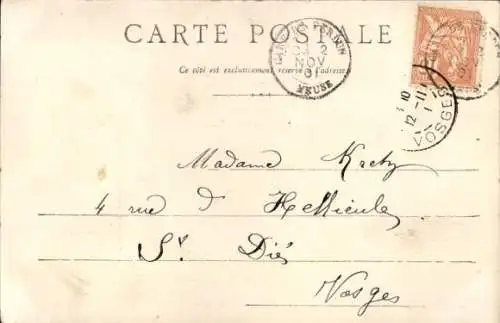 CARTE POSTALE
Ce côté est exclusivement réservé à l'adresse
GARE DE VERDUN
2
NOV
01
MEUSE
10
12 -11
VOSGES
Madame Kretz
4 rue d'Hellieule
St. Dié
Vosges